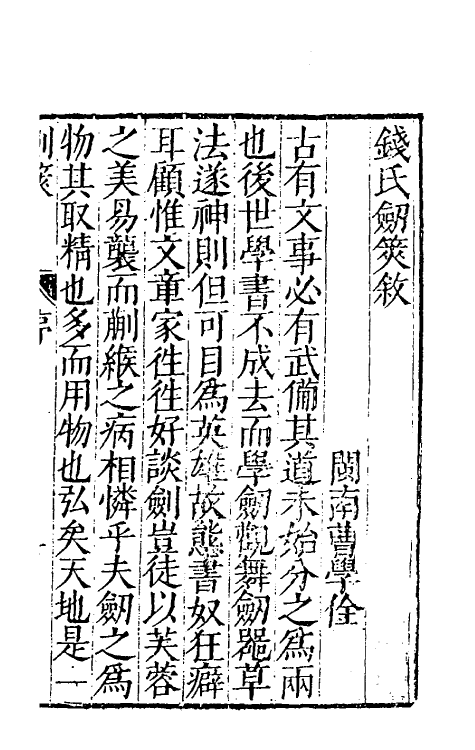 錢氏劒筴敘
閩南曹學佺
古有文事必有武備其道未始分之爲兩
也後世學書不成去而學劒觀舞劒器草
法遂神則但可目爲英雄故態書奴狂癖
耳顧惟文章家徃徃好談劍豈徒以芙蓉
之美易襲而蒯緱之病相憐乎夫劒之爲
物其取精也多而用物也弘矣天地是一
序